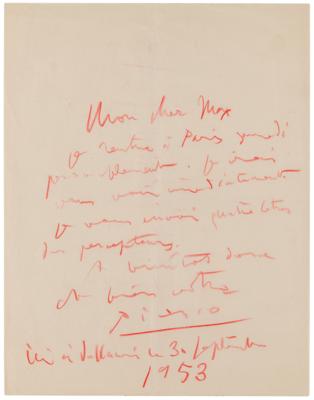 Mon cher Max
je rentre à Paris samedi
probablement. Je irai
vous voir immédiatement
Je vous envoie quatre lettres
du percepteur.
A bientôt donc
et bien votre
Picasso
ici à Vallauris le 30 septembre
1953